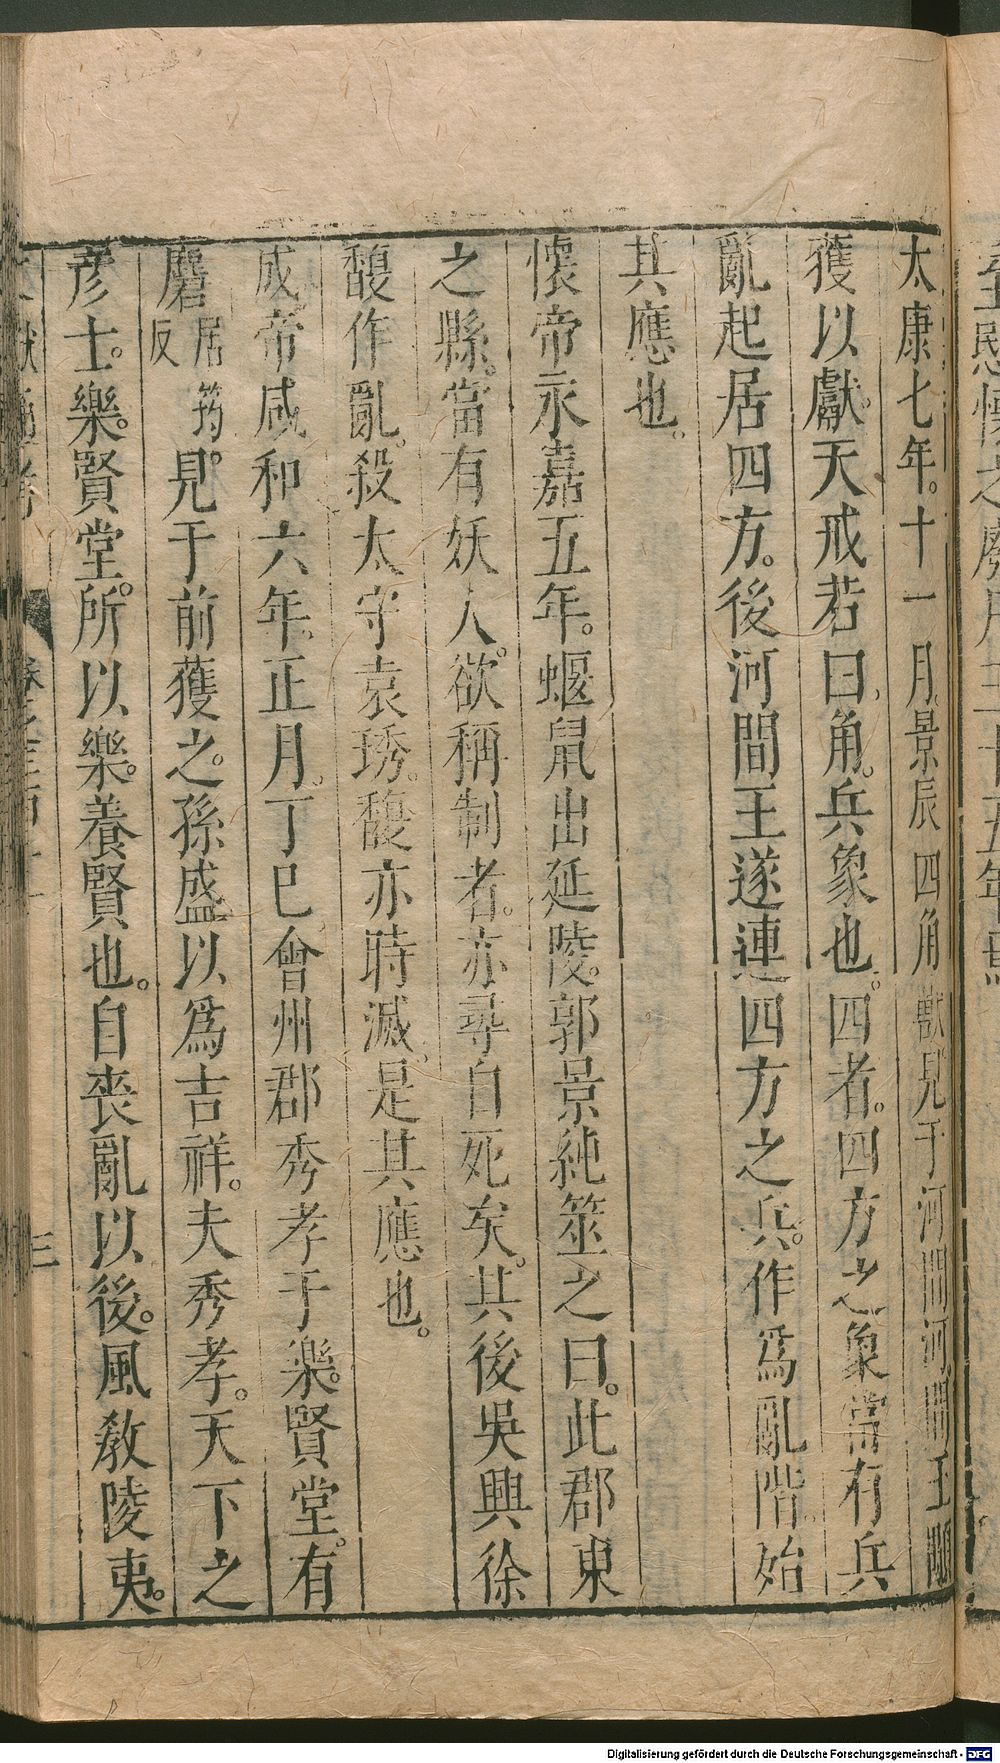 太康七年。十一月。景辰四角獸見于河間。河間王顒
獲以獻。天戒若曰。角。兵象也。四者。四方之象。當有兵
亂起居四方。後河間王遂連四方之兵。作爲亂階。始
其應也。
懷帝永嘉五年。蝘鼠出延陵。郭景純筮之曰。此郡東
之縣。當有妖人。欲稱制者。亦尋自死矣。其後吳興徐
馥作亂。殺太守袁琇。馥亦時滅。是其應也。
成帝咸和六年。正月。丁巳。會州郡秀孝于樂賢堂。有
麏居筠。反見于前。獲之。孫盛以爲吉祥。夫秀孝。天下之
彦士。樂賢堂。所以樂。養賢也。自喪亂以後。風教陵夷。
三
Digitalisierung gefördert durch die Deutsche Forschungsgemeinschaft - DFG